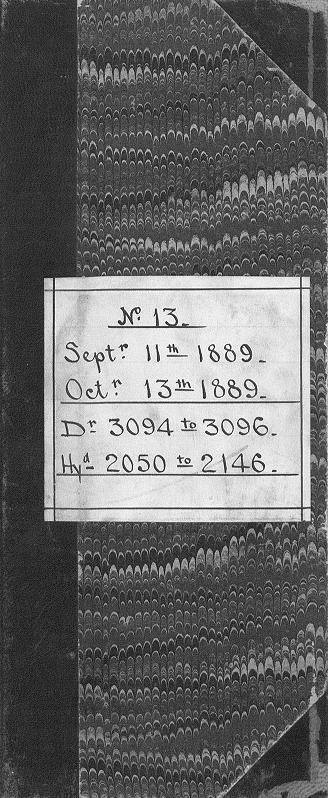 No 13.
Septr 11th 1889.
Octr 13th 1889.
Dr 3094 to 3096.
Hyd 2050 to 2146.